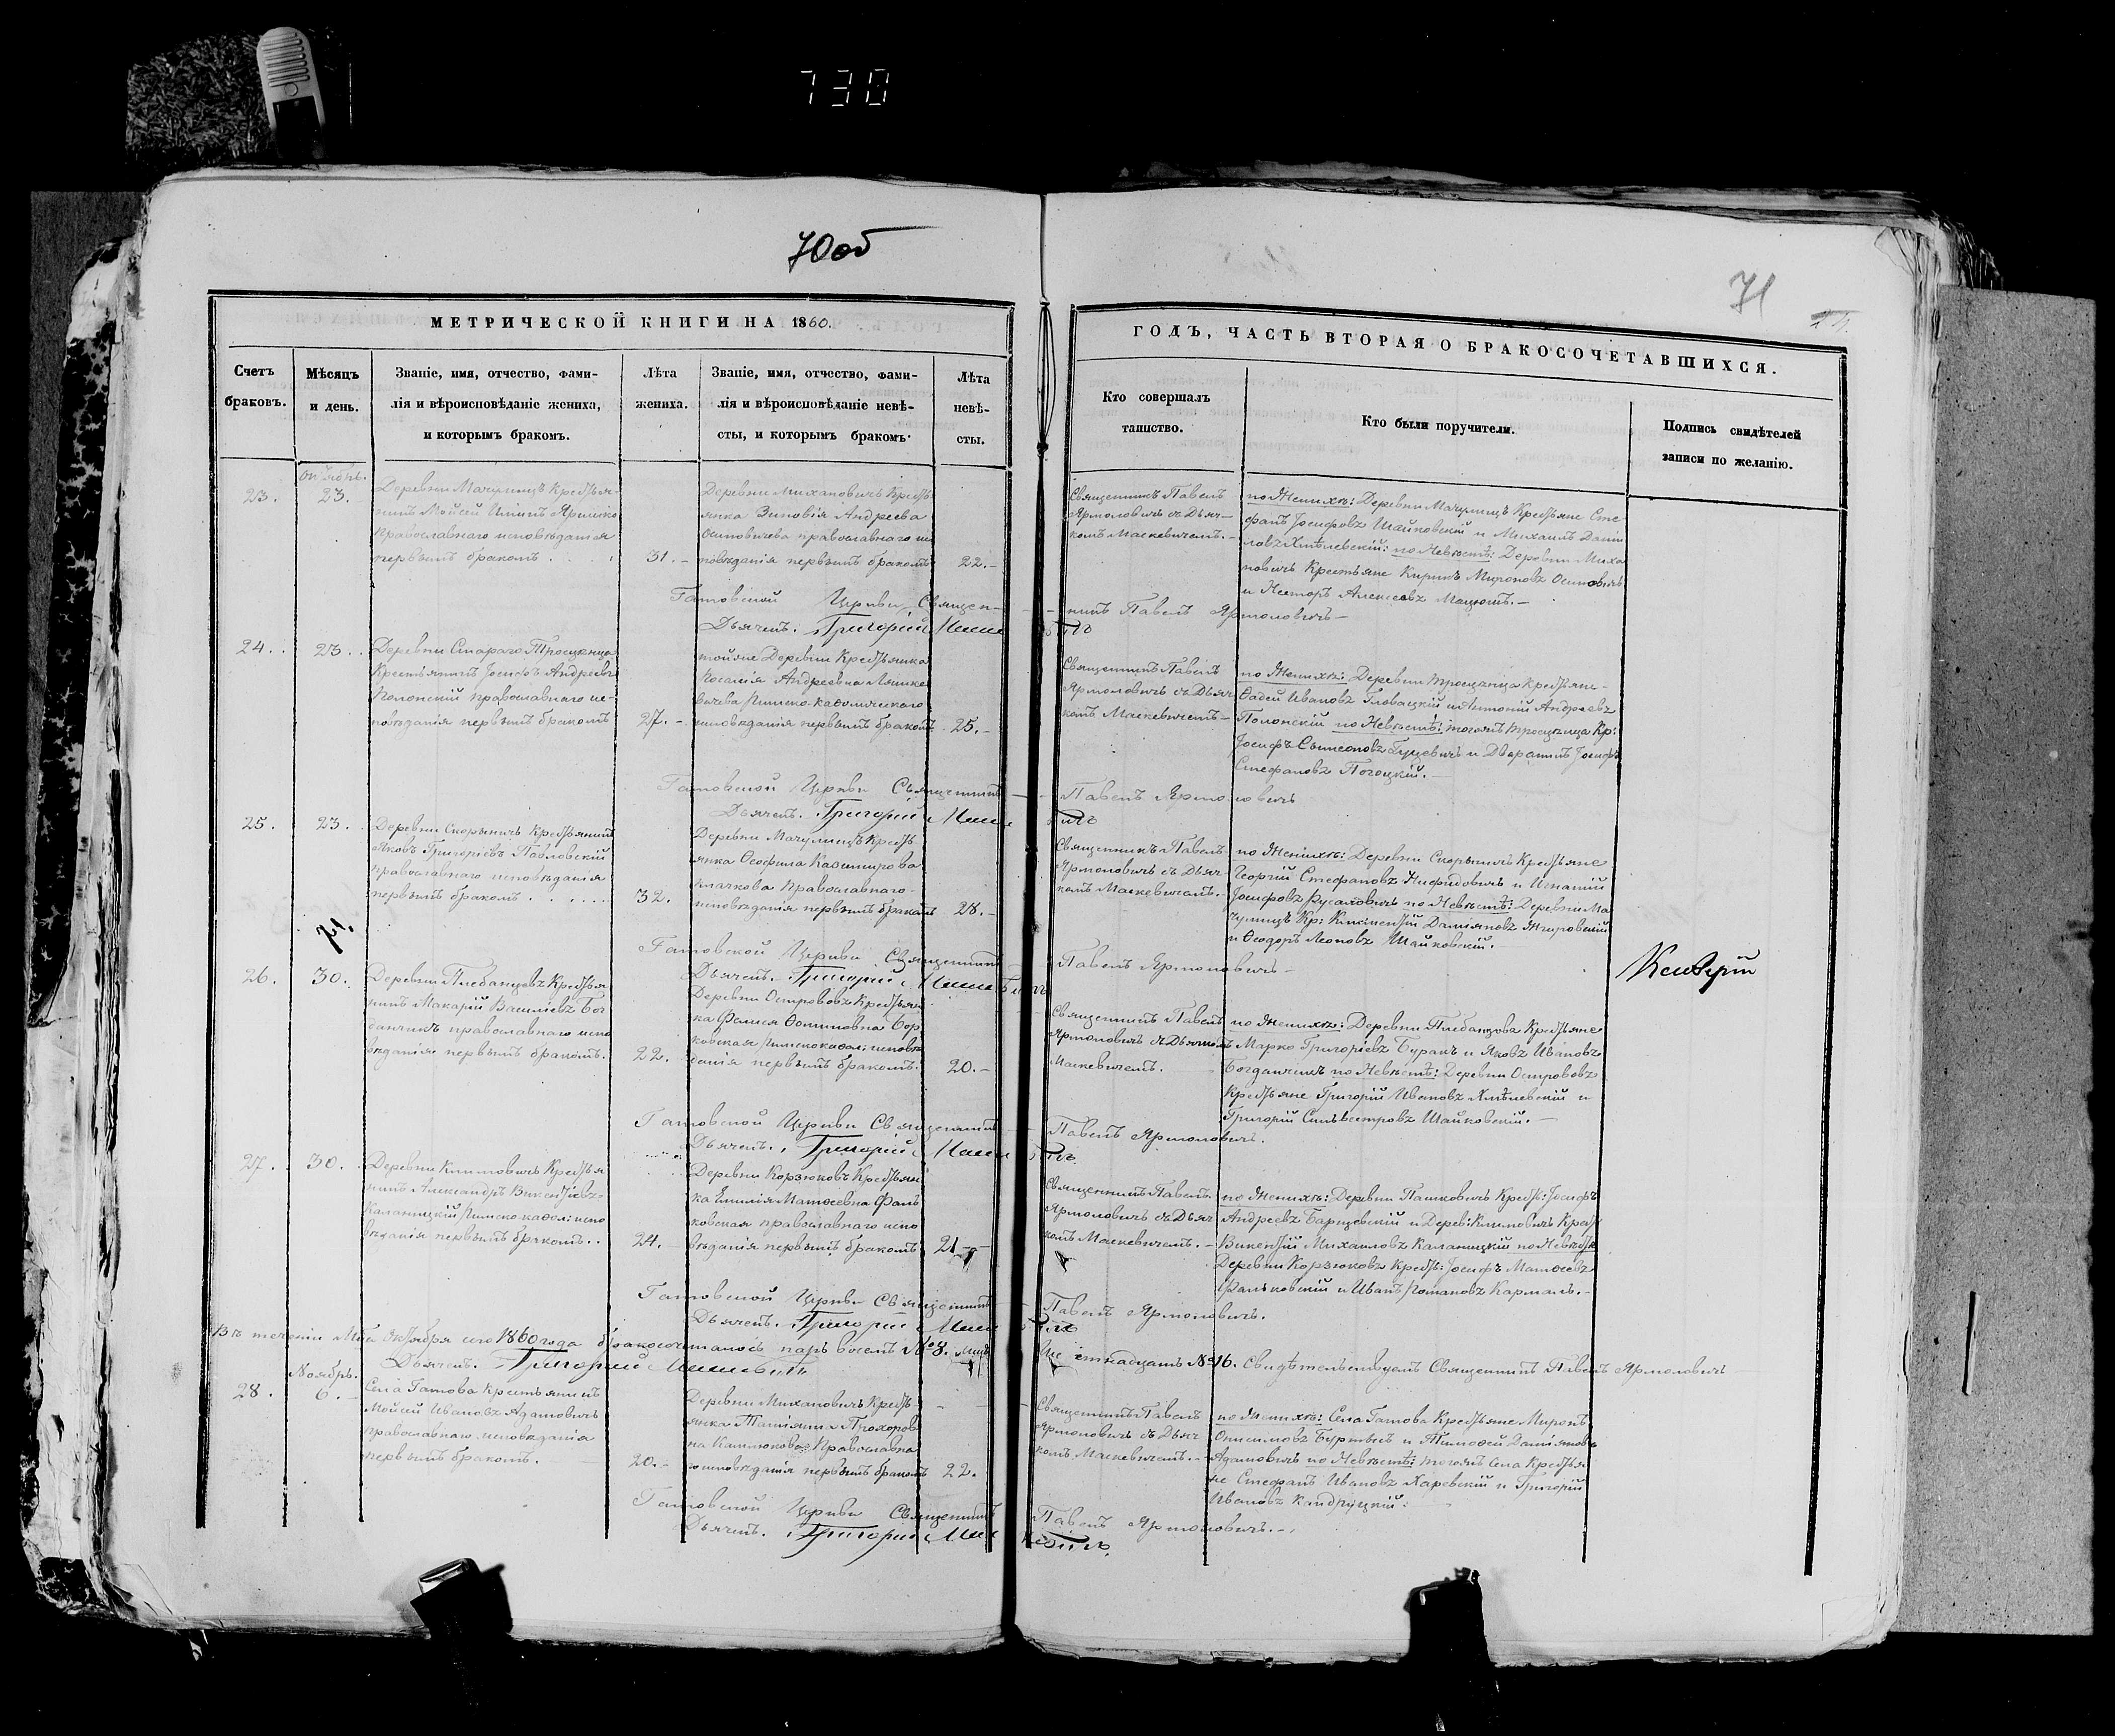 730
70 об
71
МЕТРИЧЕСКОЙ КНИГИ НА 1860.
ГОДЪ, ЧАСТЬ ВТОРАЯ О БРАКОСОЧЕТАВШИХСЯ.
Счетъ браковъ.
Мѣсяцъ и день.
Званіе, имя, отчество, фами-
лія и вѣроисповѣданіе жениха,
и которымъ бракомъ.
Лѣта
жениха.
Званіе, имя, отчество, фами-
лія и вѣроисповѣданіе невѣ-
сты, и которымъ бракомъ.
Лѣта
невѣ-
сты.
Кто совершалъ
таинство.
Кто были поручители.
Подпись свидѣтелей
записи по желанію.
23.
23.
Деревни Мачулищъ Крестья-
нинъ Мойсей
православнаго исповѣданія
первымъ бракомъ
31.
Деревни Михановичъ Кресть
янка Зиновія Андреева
Осиповичева православнаго ис
повѣданія первымъ бракомъ
22.
Священникъ Павелъ
Ярмоловичъ съ Дьяч-
комъ Маскевичемъ.
по Женихѣ: Деревни Мачулищъ Крестьяне Сте
фанъ Іосифовъ Шайковскій и Михаилъ Дани
ловъ Хмѣлевскій: по Невѣстѣ: Деревни Миха
новичъ Крестьяне Кирикъ Мироновъ Осиповичъ
и Несторъ Алексеевъ Мацютъ.
Гатовской Церкви Священ-
никъ Павелъ Ярмоловичъ
Дьячекъ Григорій
24.
23.
Деревни Стараго Тросценца
Крестьянинъ Іосифъ Андреевъ
Полонскій православнаго ис-
повѣданія первымъ бракомъ
27.
тойже Деревни Крестьянка
Андреевна
Римско-католическаго
исповѣданія первымъ бракомъ
25.
Священникъ Павелъ
Ярмоловичъ съ Дьяч
комъ Маскевичемъ
по Женихѣ: Деревни Тросценца Крестьяне
Фадей Ивановъ Гловацкій и Антоній Андреевъ
Полонскій по Невѣстѣ: тогожъ Тросценца Кр:
Іосифъ Гуцевичъ и Дворянинъ Іосифъ
Стефановъ
Гатовской Церкви Священникъ
Павелъ Ярмоловичъ
Дьячекъ. Григорій
25.
23.
Деревни Скорыничъ Крестьянинъ
Яковъ Григоріевъ Павловскій
православнаго исповѣданія
первымъ бракомъ
32.
Деревни Мачулищъ Кресть
янка Ѳеофила Казимирова
Православнаго
исповѣданія первымъ бракомъ
28.
Священникъ Павелъ
Ярмоловичъ съ Дьяч
комъ Маскевичемъ.
по Женихѣ: Деревни Скорыничъ Крестьяне
Георгій Стефановъ и Игнатій
Іосифовъ Русаловичъ по Невѣстѣ: Деревни Ма
чулищъ Кр: Даміановъ Жировскій
и Ѳеодоръ Леоновъ Шайковскій.
Гатовской Церкви Священникъ
Павелъ Ярмоловичъ
Дьячекъ. Григорій
26.
30.
Деревни Плебанцевъ Крестья
нинъ Макарій Василіевъ Бог
данчикъ православнаго испо
вѣданія первымъ бракомъ.
22.
Деревни Острововъ Крестьян
ка Осиповна Бор
ковская Римскокатол: исповѣ
данія первымъ бракомъ
20.
Священникъ Павелъ
Ярмоловичъ съ Дьячкомъ
Маскевичемъ.
по Женихѣ: Деревни Плебанцова Крестьяне
Марко Григоріевъ Буракъ и Яковъ Ивановъ
Богданчикъ по Невѣстѣ: Деревни Острововъ
Крестьяне Григорій Ивановъ Хмѣлевскій и
Григорій Сильвестровъ Шайковскій.
Гатовской Церкви Священникъ
Павелъ Ярмоловичъ.
Дьячекъ. Григорій
27.
30.
Деревни Климовичъ Крестья
нинъ Александръ Викентіевъ
Римско-катол: испо
вѣданія первымъ бракомъ.
24.
Деревни Корзюковъ Крестьян
ка Емилія Матѳеевна Фаль
ковская православнаго испо
вѣданія первымъ бракомъ
21
Священникъ Павелъ
Ярмоловичъ съ Дьяч
комъ Маскевичемъ.
по Женихѣ: Деревни Пашковичъ Крест: Іосифъ
Андреевъ Барщевскій и Дерев: Климовичъ Крест
Викентій Михаиловъ по Невѣстѣ
Деревни Корзюковъ Крест: Іосифъ Матѳеевъ
Фальковскій и Иванъ Романовъ Кармазъ.
Гатовской Церкви Священникъ
Павелъ Ярмоловичъ.
Дьячекъ. Григорій
Въ теченіи М-ца Октября сего 1860 года бракосочеталось паръ восемь №8. лицъ шестнадцать №16. Свидѣтельствуемъ Священникъ Павелъ Ярмоловичъ
Дьячекъ. Григорій
Ноябрь.
28.
6.
Села Гатова Крестьянинъ
Мойсей Ивановъ Адамовичъ
Православнаго исповѣданія
первымъ бракомъ.
20.
Деревни Михановичъ Кресть
янка Татіянна Прохоров
на Православна
го исповѣданія первымъ бракомъ
22.
Священникъ Павелъ
Ярмоловичъ съ Дьяч
комъ Маскевичемъ.
по Женихѣ: Села Гатова Крестьяне Миронъ
Онисимовъ и Тимофей Даміановъ
Адамовичъ по Невѣстѣ: тогожъ Села Крестья
не Стефанъ Ивановъ Харевскій и Григорій
Ивановъ Кандруцкій:
Гатовской Церкви Священникъ
Павелъ Ярмоловичъ.
Дьячекъ. Григорій